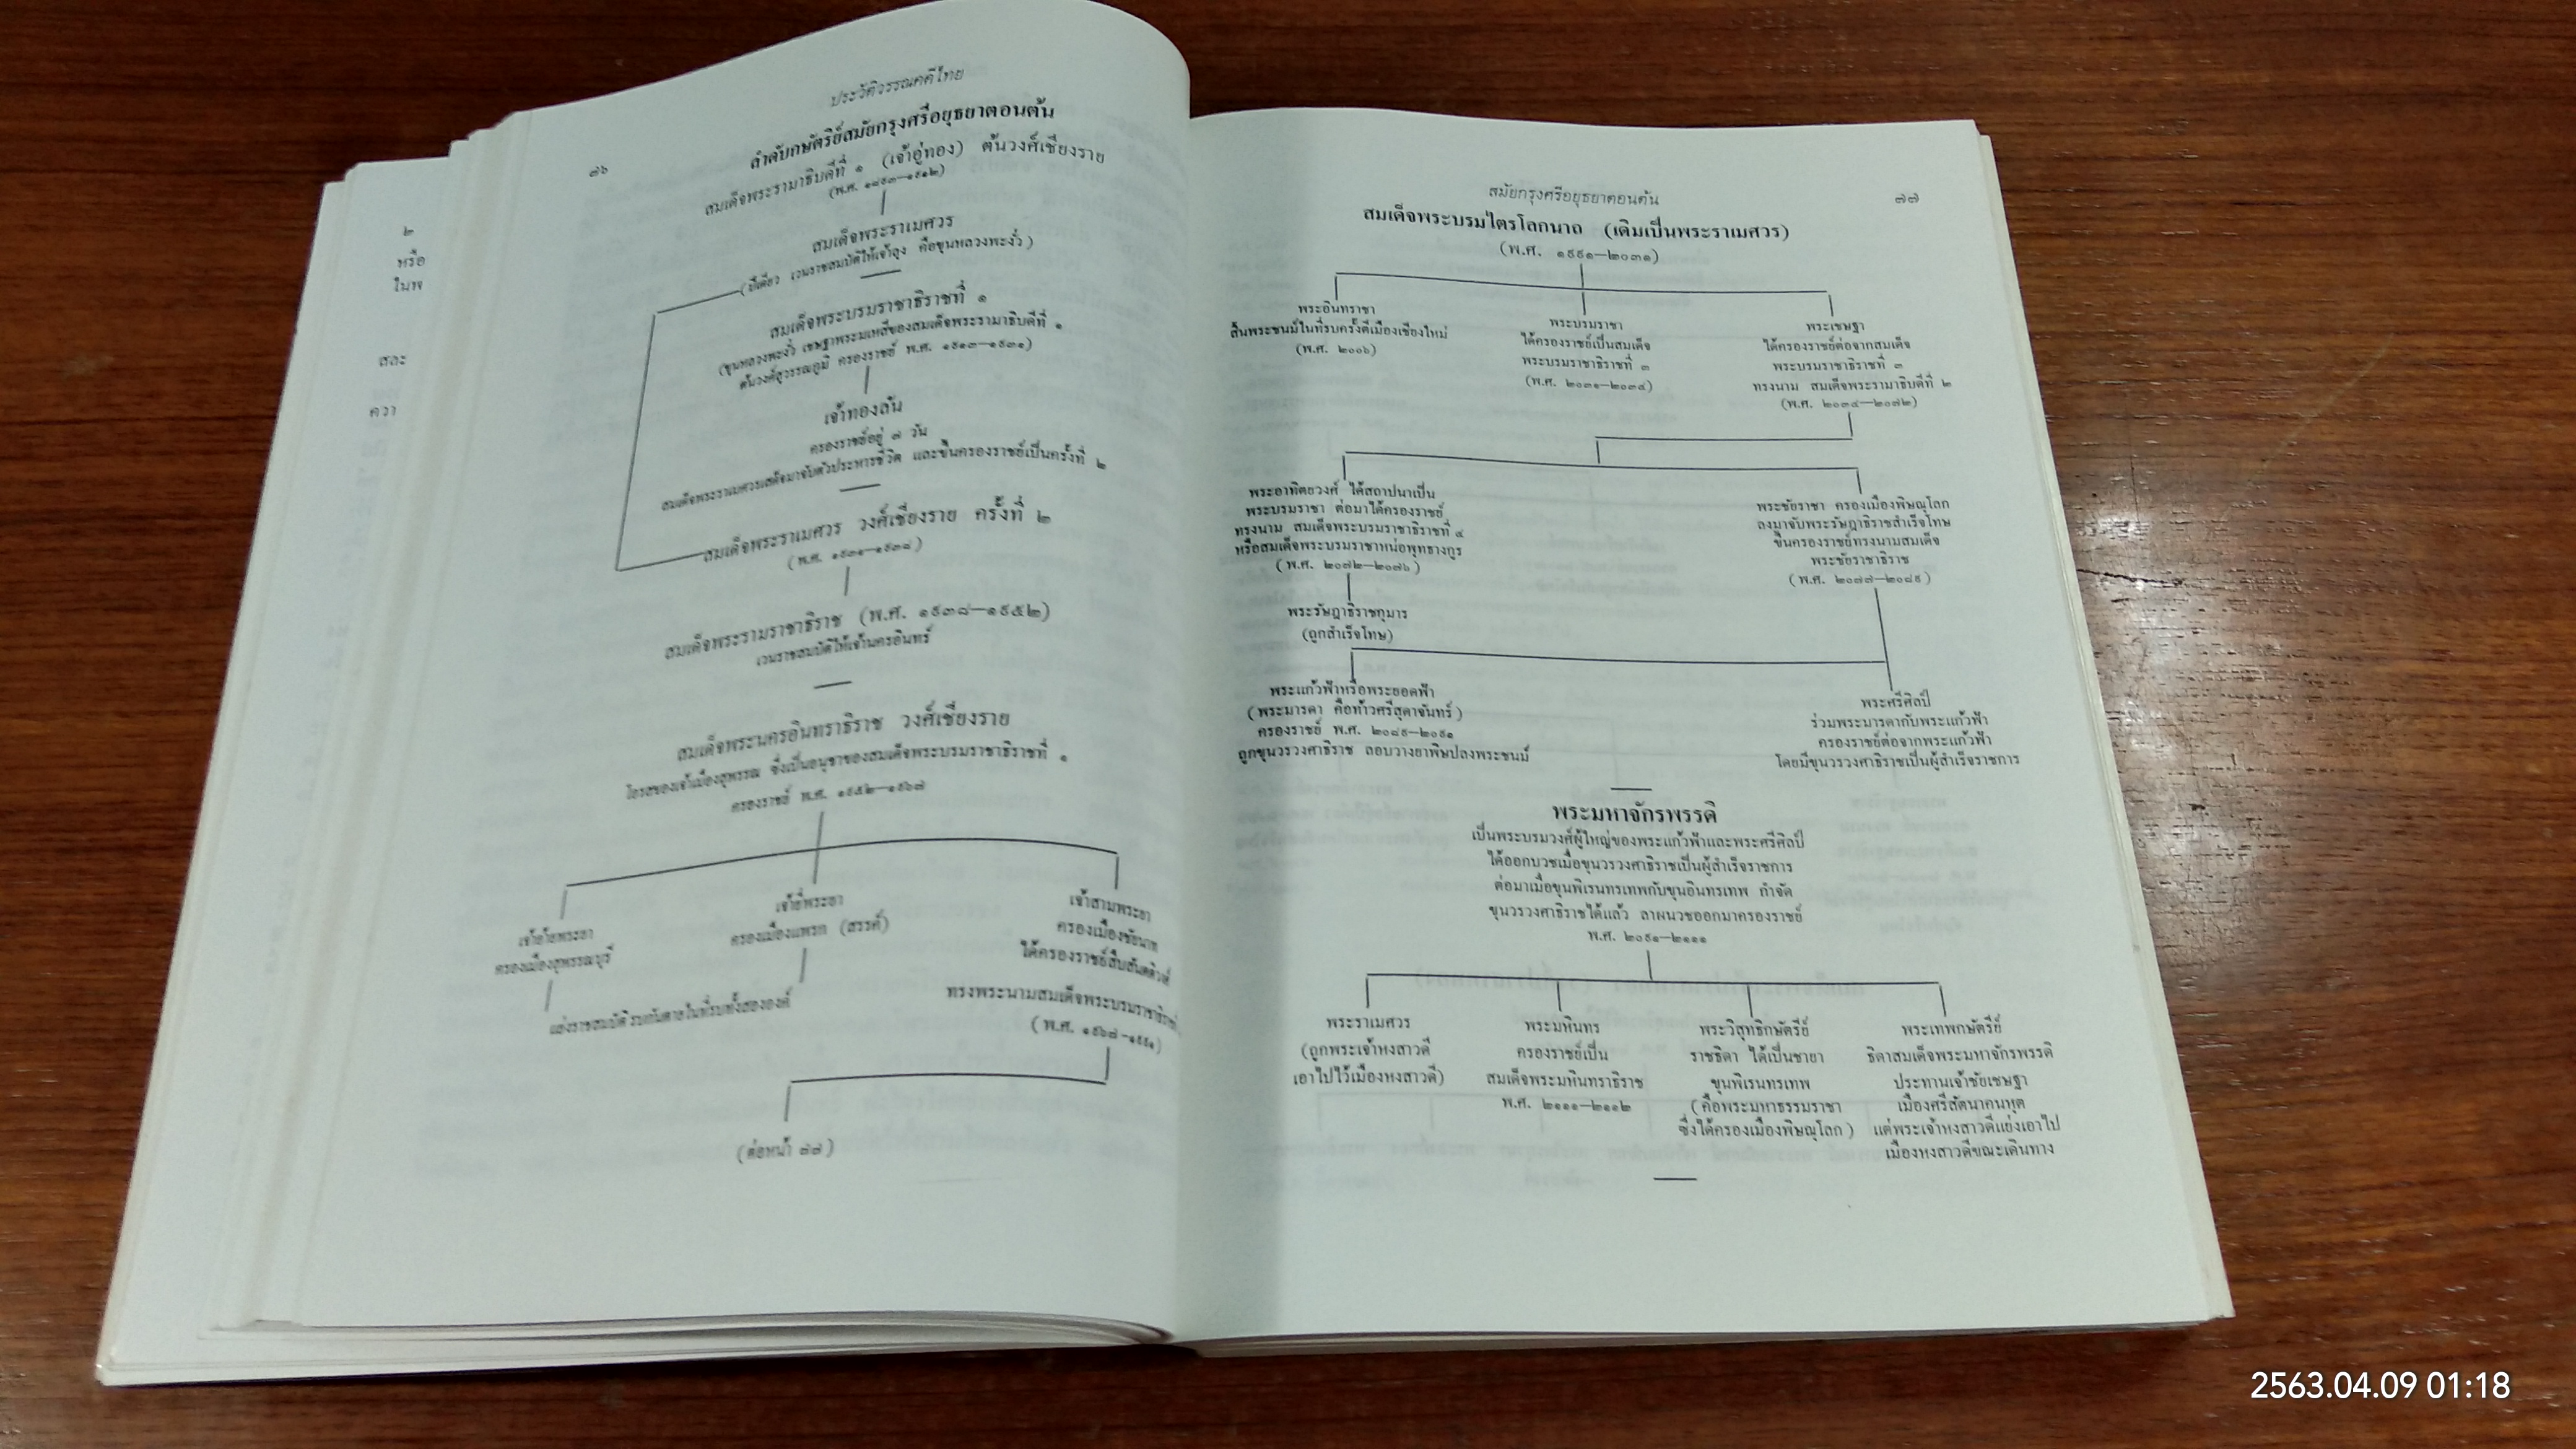 ๒
หรือ
ในพ
สละ
ควา
ประวัติวรรณคดีไทย
๗๖
ลำดับกษัตริย์สมัยกรุงศรีอยุธยาตอนต้น
สมเด็จพระรามาธิบดีที่ ๑ (เจ้าอู่ทอง) ต้นวงศ์เชียงราย
(พ.ศ. ๑๘๙๓—๑๙๑๒)
สมเด็จพระราเมศวร
(ปีเดียว เวนราชสมบัติให้เจ้าลุง คือขุนหลวงพะงั่ว)
สมเด็จพระบรมราชาธิราชที่ ๑
(ขุนหลวงพะงั่ว เชษฐาพระมเหสีของสมเด็จพระรามาธิบดีที่ ๑
ต้นวงศ์สุวรรณภูมิ ครองราชย์ พ.ศ. ๑๙๑๓—๑๙๓๑)
เจ้าทองลัน
ครองราชย์อยู่ ๗ วัน
สมเด็จพระราเมศวรเสด็จมาจับตัวประหารชีวิต และขึ้นครองราชย์เป็นครั้งที่ ๒
สมเด็จพระราเมศวร วงศ์เชียงราย ครั้งที่ ๒
(พ.ศ. ๑๙๓๑—๑๙๓๘)
สมเด็จพระรามราชาธิราช (พ.ศ. ๑๙๓๘—๑๙๕๒)
เวนราชสมบัติให้เจ้านครอินทร์
สมเด็จพระนครอินทราธิราช วงศ์เชียงราย
โอรสของเจ้าเมืองสุพรรณ ซึ่งเป็นอนุชาของสมเด็จพระบรมราชาธิราชที่ ๑
ครองราชย์ พ.ศ. ๑๙๕๒—๑๙๖๗
เจ้าอ้ายพระยา
ครองเมืองสุพรรณบุรี
เจ้ายี่พระยา
ครองเมืองแพรก (สรรค์)
แย่งราชสมบัติ รบกันตายในที่รบทั้งสององค์
เจ้าสามพระยา
ครองเมืองชัยนาท
ได้ครองราชย์สืบสันตติวงศ์
ทรงพระนามสมเด็จพระบรมราชาธิราชที่
(พ.ศ. ๑๙๖๗-๑๙๙๑)
(ต่อหน้า ๗๗)
สมัยกรุงศรีอยุธยาตอนต้น
๗๗
สมเด็จพระบรมไตรโลกนาถ (เดิมเป็นพระราเมศวร)
(พ.ศ. ๑๙๙๑—๒๐๓๑)
พระอินทราชา
สิ้นพระชนม์ในที่รบครั้งตีเมืองเชียงใหม่
(พ.ศ. ๒๐๐๖)
พระบรมราชา
ได้ครองราชย์เป็นสมเด็จ
พระบรมราชาธิราชที่ ๓
(พ.ศ. ๒๐๓๑—๒๐๓๔)
พระเชษฐา
ได้ครองราชย์ต่อจากสมเด็จ
พระบรมราชาธิราชที่ ๓
ทรงนาม สมเด็จพระรามาธิบดีที่ ๒
(พ.ศ. ๒๐๓๔—๒๐๗๒)
พระอาทิตยวงศ์ ได้สถาปนาเป็น
พระบรมราชา ต่อมาได้ครองราชย์
ทรงนาม สมเด็จพระบรมราชาธิราชที่ ๔
หรือสมเด็จพระบรมราชาหน่อพุทธางกูร
(พ.ศ. ๒๐๗๒—๒๐๗๖)
พระรัษฎาธิราชกุมาร
(ถูกสำเร็จโทษ)
พระชัยราชา ครองเมืองพิษณุโลก
ลงมาจับพระรัษฎาธิราชสำเร็จโทษ
ขึ้นครองราชย์ทรงนามสมเด็จ
พระชัยราชาธิราช
(พ.ศ. ๒๐๗๗—๒๐๘๙)
พระแก้วฟ้าหรือพระยอดฟ้า
(พระมารดา คือท้าวศรีสุดาจันทร์)
ครองราชย์ พ.ศ. ๒๐๘๙—๒๐๙๑
ถูกขุนวรวงศาธิราช ลอบวางยาพิษปลงพระชนม์
พระศรีศิลป์
ร่วมพระมารดากับพระแก้วฟ้า
ครองราชย์ต่อจากพระแก้วฟ้า
โดยมีขุนวรวงศาธิราชเป็นผู้สำเร็จราชการ
พระมหาจักรพรรดิ
เป็นพระบรมวงศ์ผู้ใหญ่ของพระแก้วฟ้าและพระศรีศิลป์
ได้ออกบวชเมื่อขุนวรวงศาธิราชเป็นผู้สำเร็จราชการ
ต่อมาเมื่อขุนพิเรนทรเทพกับขุนอินทรเทพ กำจัด
ขุนวรวงศาธิราชได้แล้ว ลาผนวชออกมาครองราชย์
พ.ศ. ๒๐๙๑—๒๑๑๑
พระราเมศวร
(ถูกพระเจ้าหงสาวดี
เอาไปไว้เมืองหงสาวดี)
พระมหินทร
ครองราชย์เป็น
สมเด็จพระมหินทราธิราช
พ.ศ. ๒๑๑๑—๒๑๑๒
พระวิสุทธิกษัตรีย์
ราชธิดา ได้เป็นชายา
ขุนพิเรนทรเทพ
(คือพระมหาธรรมราชา
ซึ่งได้ครองเมืองพิษณุโลก)
พระเทพกษัตรีย์
ธิดาสมเด็จพระมหาจักรพรรดิ
ประทานเจ้าชัยเชษฐา
เมืองศรีสัตนาคนหุต
แต่พระเจ้าหงสาวดีแย่งเอาไป
เมืองหงสาวดีขณะเดินทาง
2563.04.09 01:18